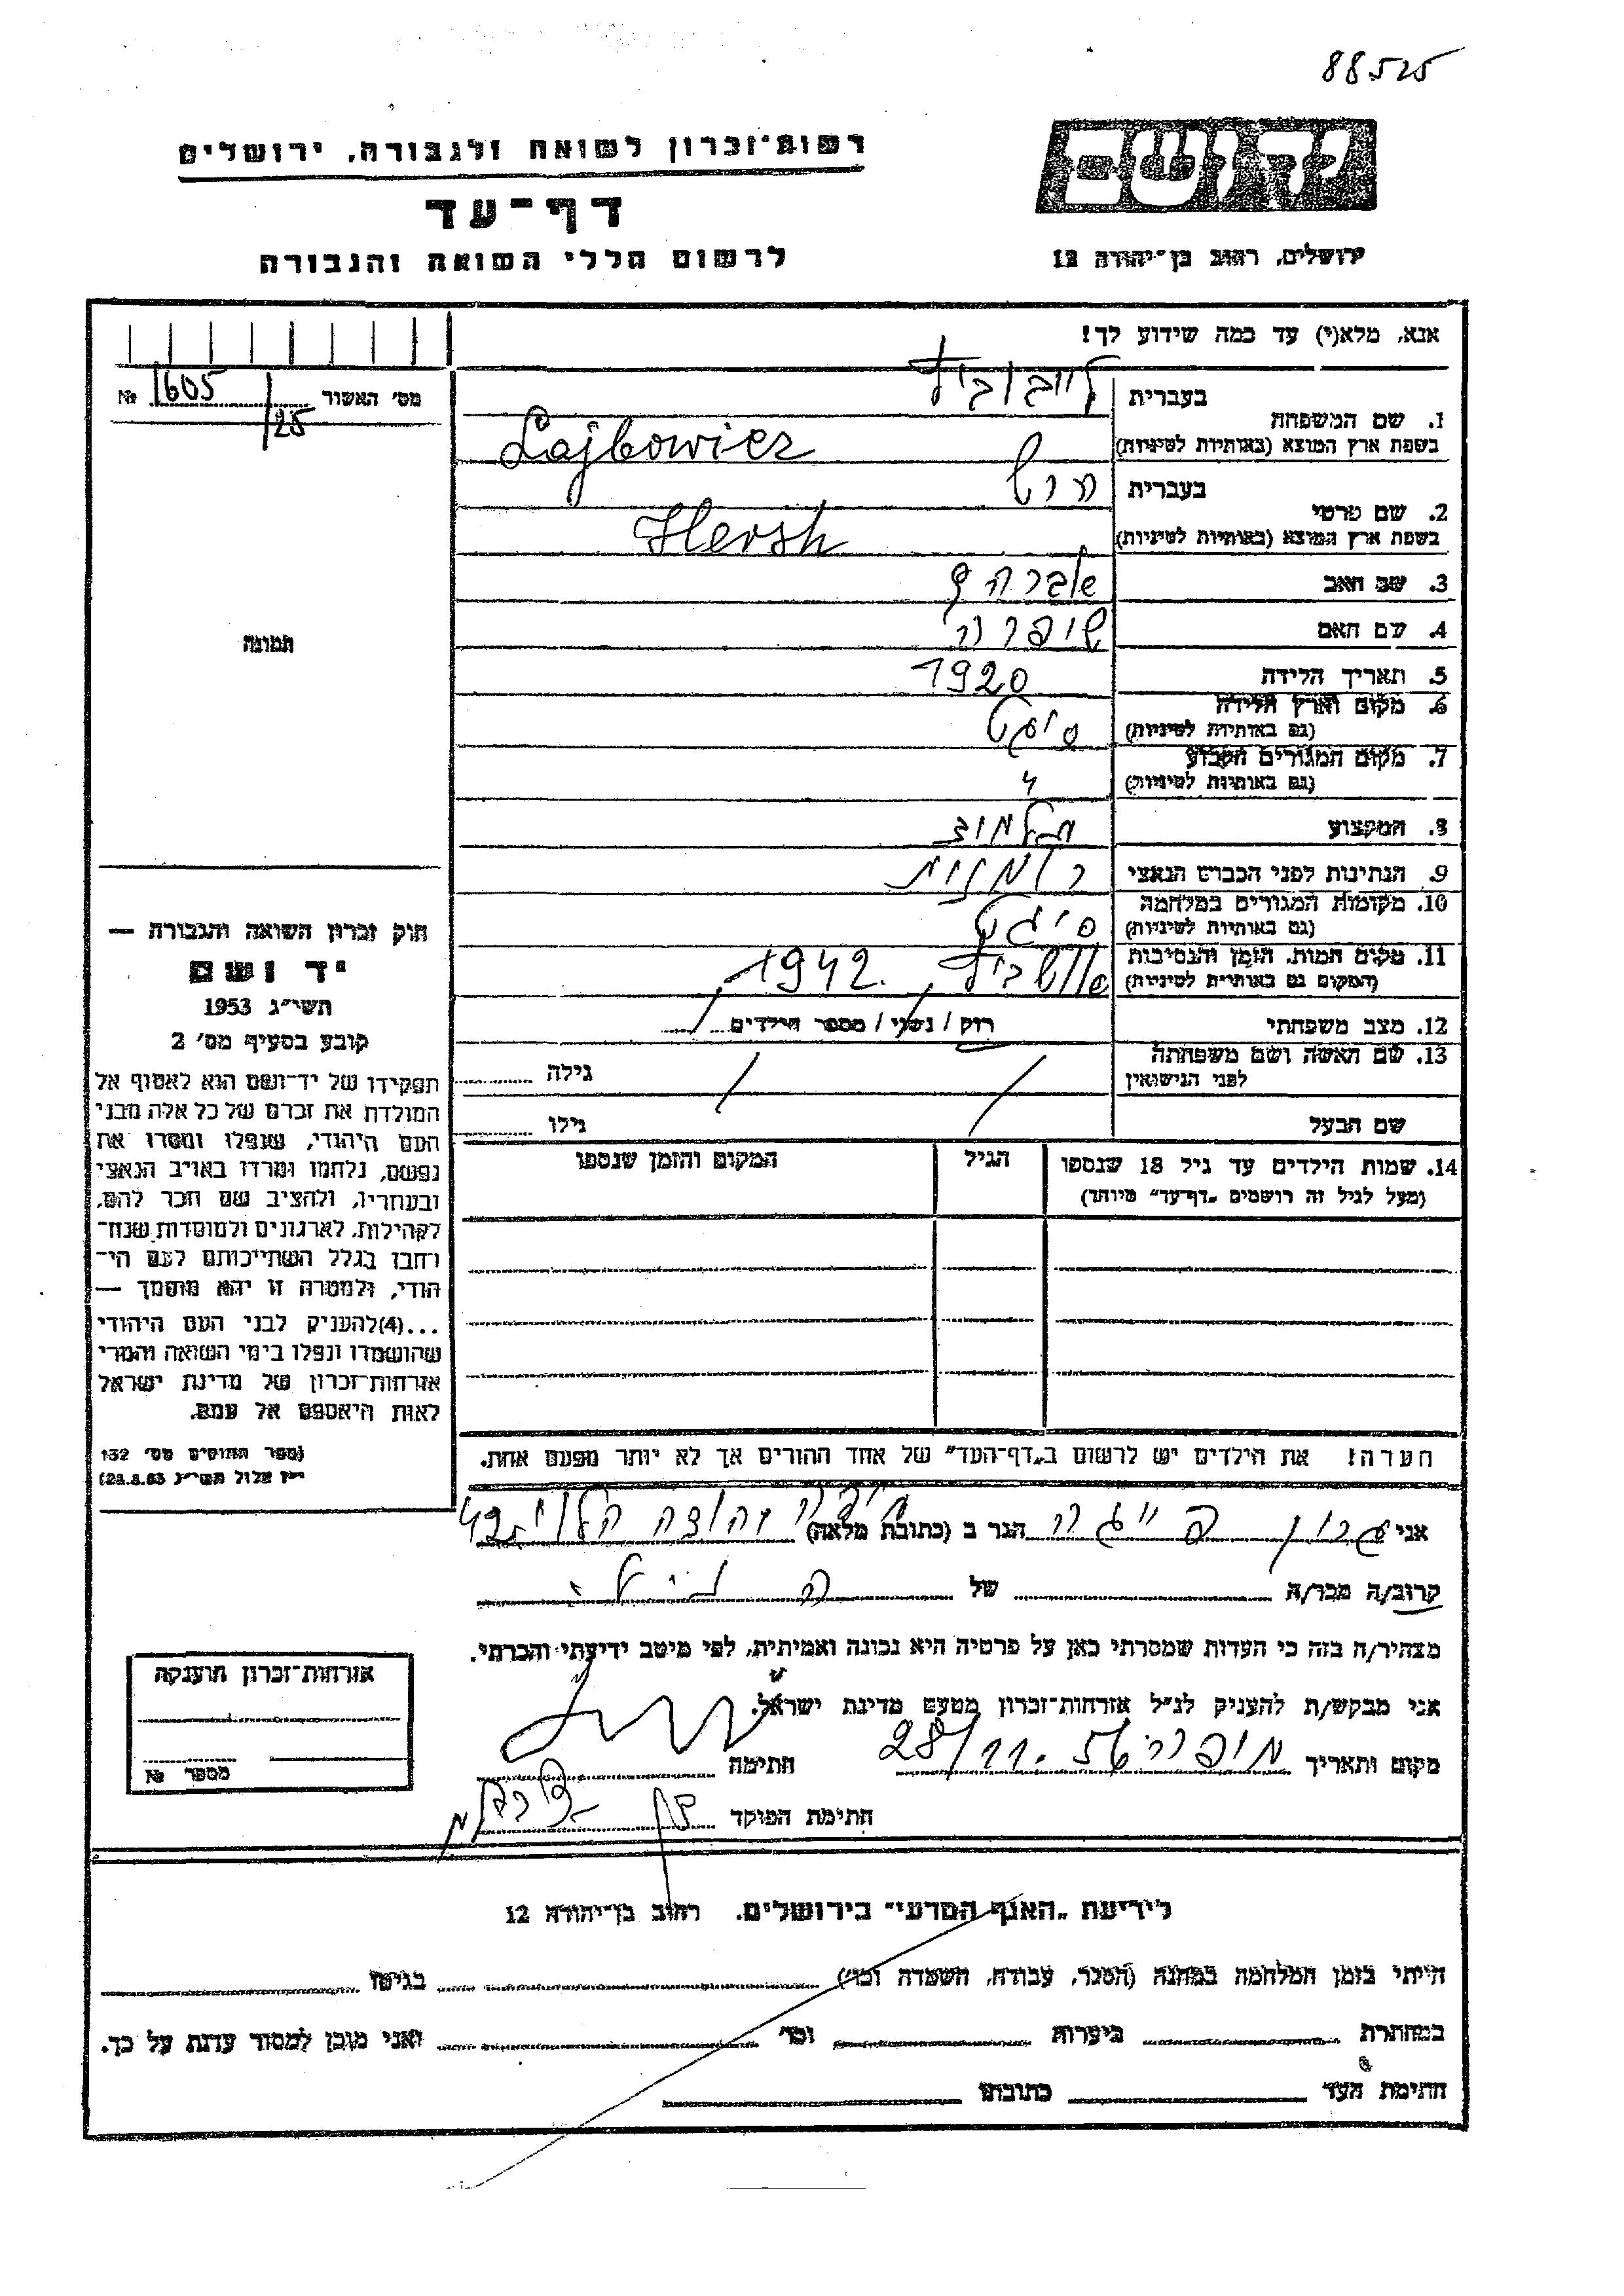 88525
רשות־זכרון לשואה ולגבורה, ירושלים
יד ושם
דף־עד
לרשום חללי השואה והגבורה
ירושלים, רחוב בן־יהודה 12
אנא, מלא(י) עד כמה שידוע לך!
מס׳ האשור № 1605/25
1. שם המשפחה בעברית לייבוביץ
בשפת ארץ המוצא (באותיות לטיניות) Lajbowicz
2. שם פרטי בעברית הרש
בשפת ארץ המוצא (באותיות לטיניות) Hersh
3. שם האב אברהם
4. שם האם שיפרה
5. תאריך הלידה 1920
6. מקום וארץ הלידה סיגט
(גם באותיות לטיניות)
7. מקום המגורים הקבוע
(גם באותיות לטיניות)
8. המקצוע
9. הנתינות לפני הכבוש הנאצי רומנית
10. מקומות המגורים במלחמה סיגט
(גם באותיות לטיניות)
11. מקום המות, הזמן והנסיבות אושביץ 1942.
(המקום גם באותיות לטיניות)
12. מצב משפחתי רווק / נשוי / מספר הילדים
13. שם האשה ושם משפחתה
לפני הנישואין גילה
שם הבעל גילו
14. שמות הילדים עד גיל 18 שנספו הגיל המקום והזמן שנספו
(מעל לגיל זה רושמים „דף־עד״ מיוחד)
הערה! את הילדים יש לרשום ב„דף־העד״ של אחד ההורים אך לא יותר מפעם אחת.
תמונה
חוק זכרון השואה והגבורה —
יד ושם
תשי״ג 1953
קובע בסעיף מס׳ 2
תפקידו של יד־ושם הוא לאסוף אל
המולדת את זכרם של כל אלה מבני
העם היהודי, שנפלו ומסרו את
נפשם, נלחמו ומרדו באויב הנאצי
ובעוזריו, ולהציב שם וזכר להם,
לקהילות, לארגונים ולמוסדות שנח־
רחבו בגלל השתייכותם לעם הי־
הודי, ולמטרה זו יהא מוסמך —
...(4) להעניק לבני העם היהודי
שהושמדו ונפלו בימי השואה והמרי
אזרחות־זכרון של מדינת ישראל
לאות היאספם אל עמם.
(ספר החוקים מס׳ 132
י״ז אלול תשי״ג 28.8.53)
אני הגר ב (כתובת מלאה) יהודה הלוי 42
קרוב/ה מכר/ה של
מצהיר/ה בזה כי העדות שמסרתי כאן על פרטיה היא נכונה ואמיתית, לפי מיטב ידיעתי והכרתי.
אני מבקש/ת להעניק לנ״ל אזרחות־זכרון מטעם מדינת ישראל.
מקום ותאריך 28/11.56 חתימה
חתימת הפוקד
אזרחות־זכרון הוענקה
מספר №
לידיעת „האגף המדעי״ בירושלים, רחוב בן־יהודה 12
הייתי בזמן המלחמה במחנה (הסגר, עבודה, השמדה וכו׳) בגיטו
במחתרת ביערות וכו׳ ואני מוכן למסור עדות על כך.
חתימת העד כתובתו